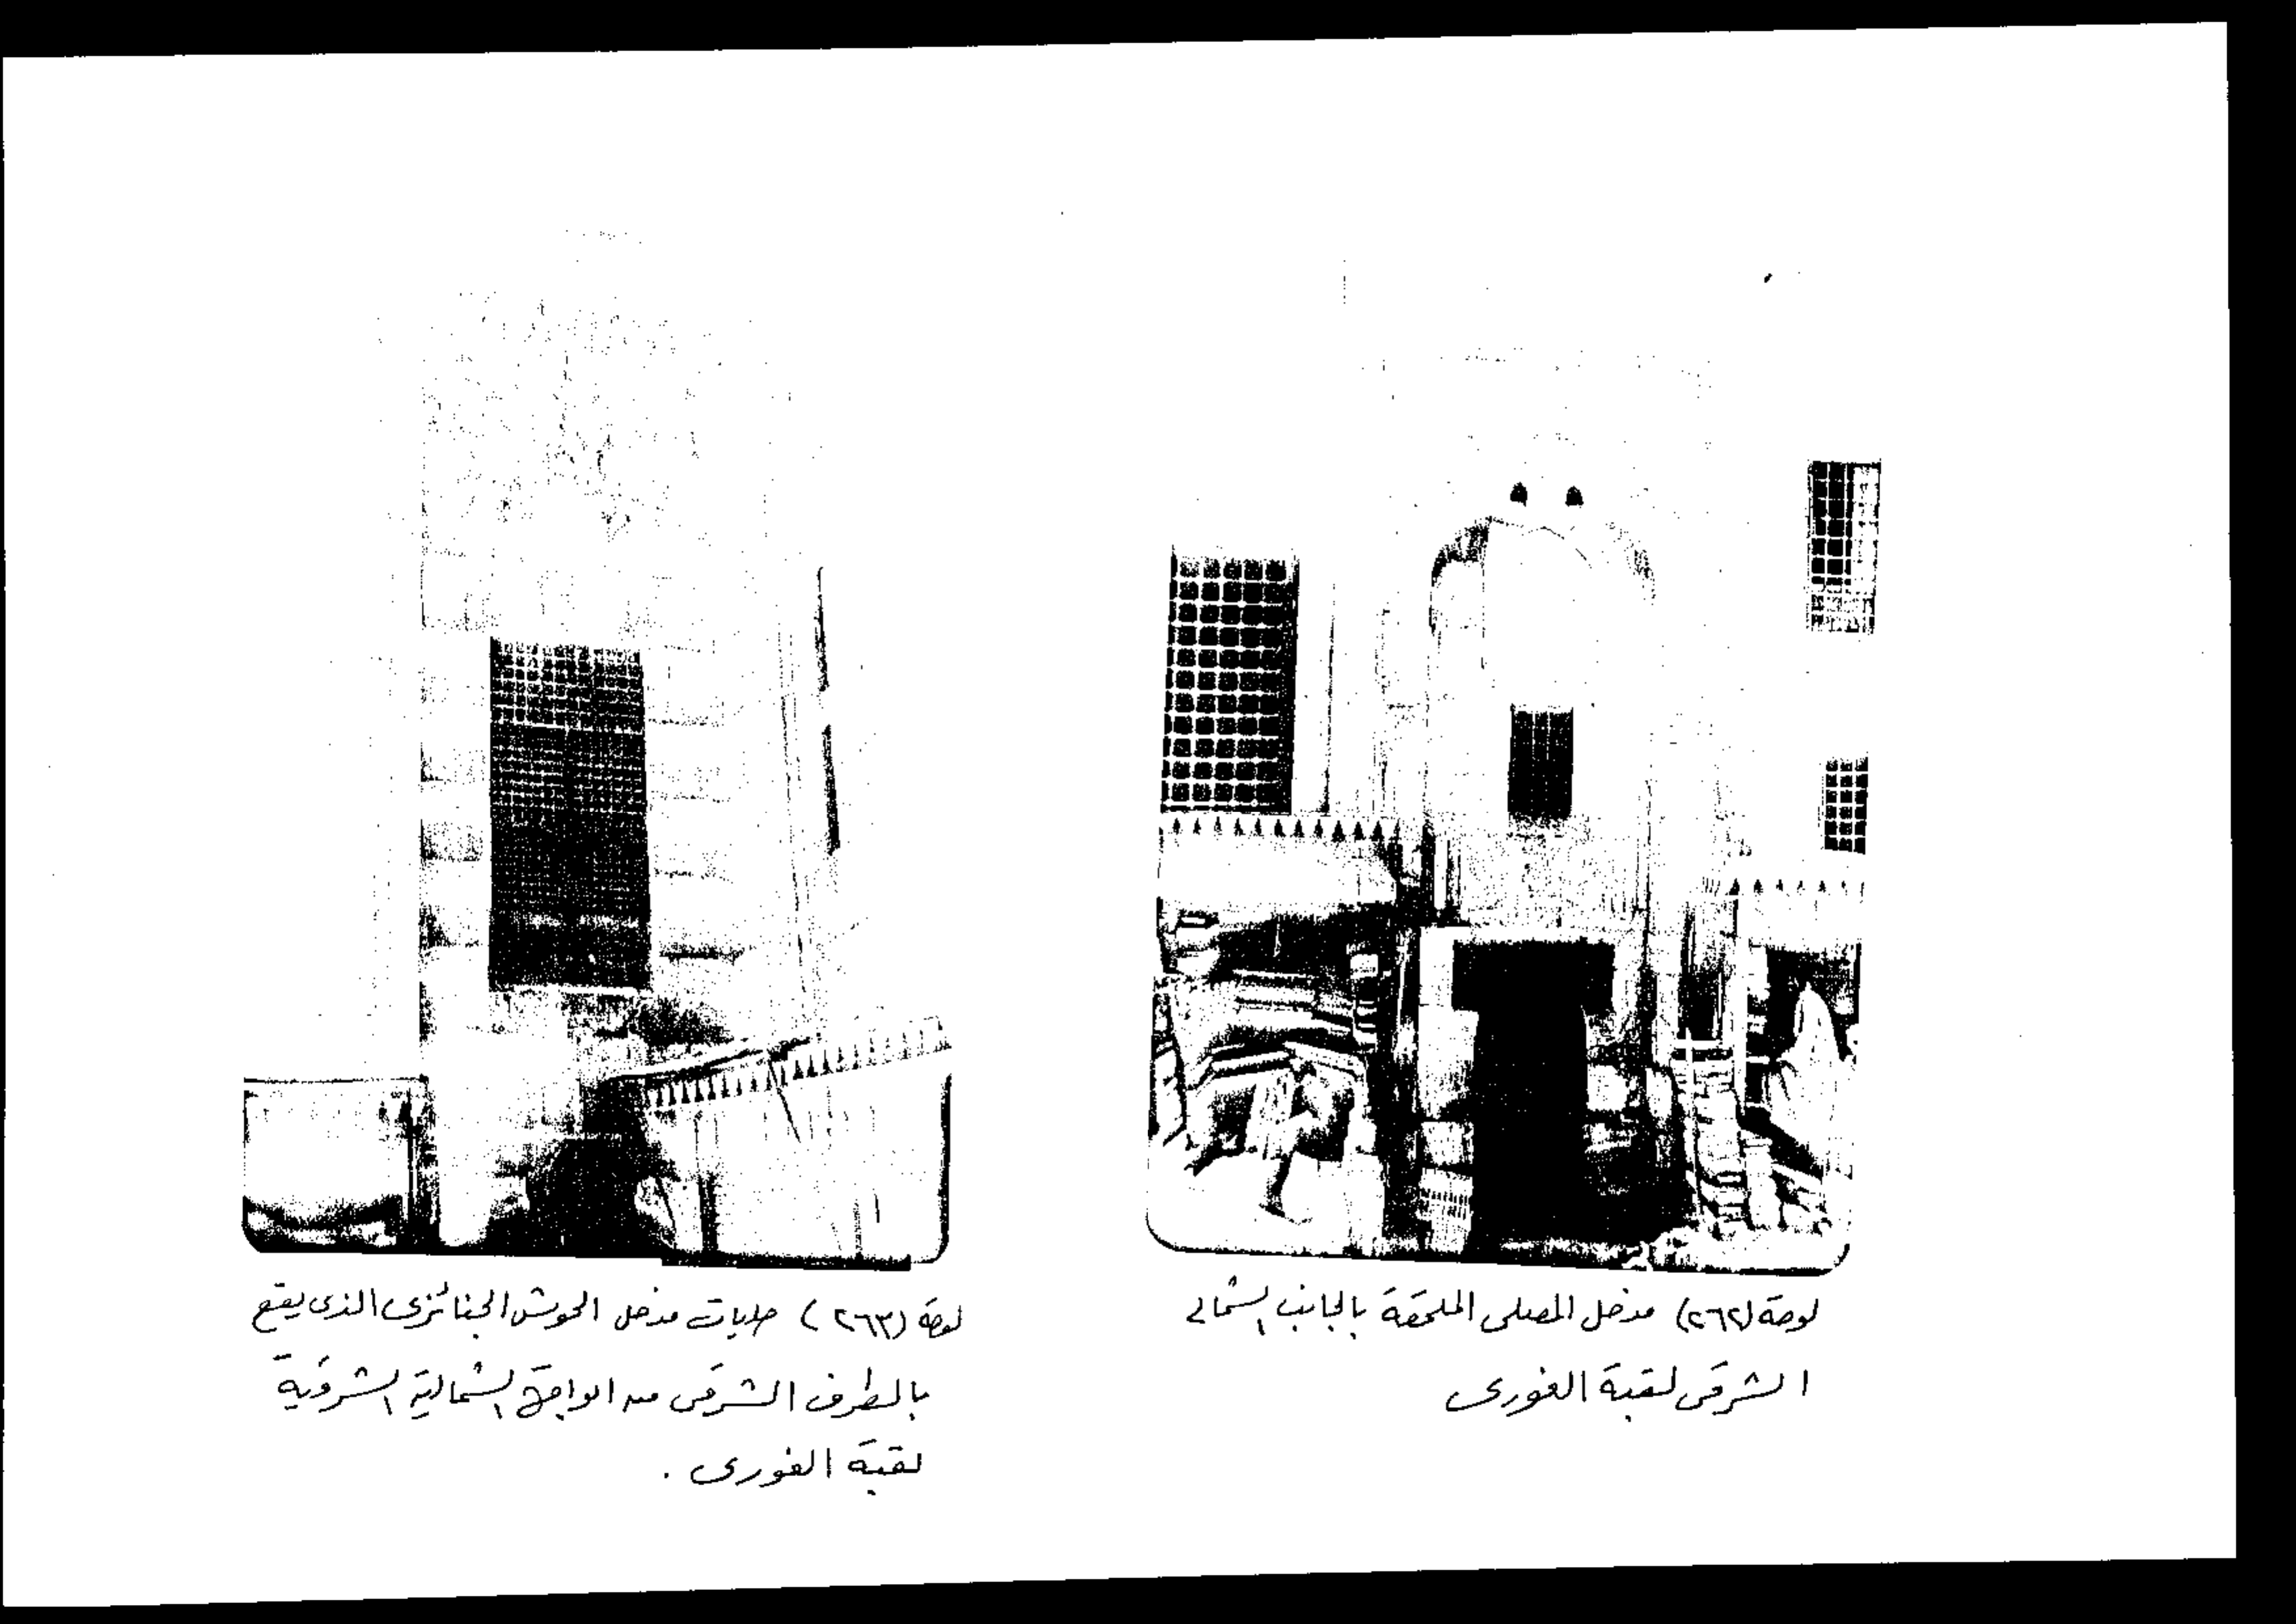 لوحة (٢٦٢) مدخل المصلى الملحقة بالجانب الشمالى
الشرقى لقبة الغورى
لوحة (٢٦٣) حليات مدخل الحوش الجنائزى الذى يقع
بالطرف الشرقى من الواجهة الشمالية الشرقية
لقبة الغورى .